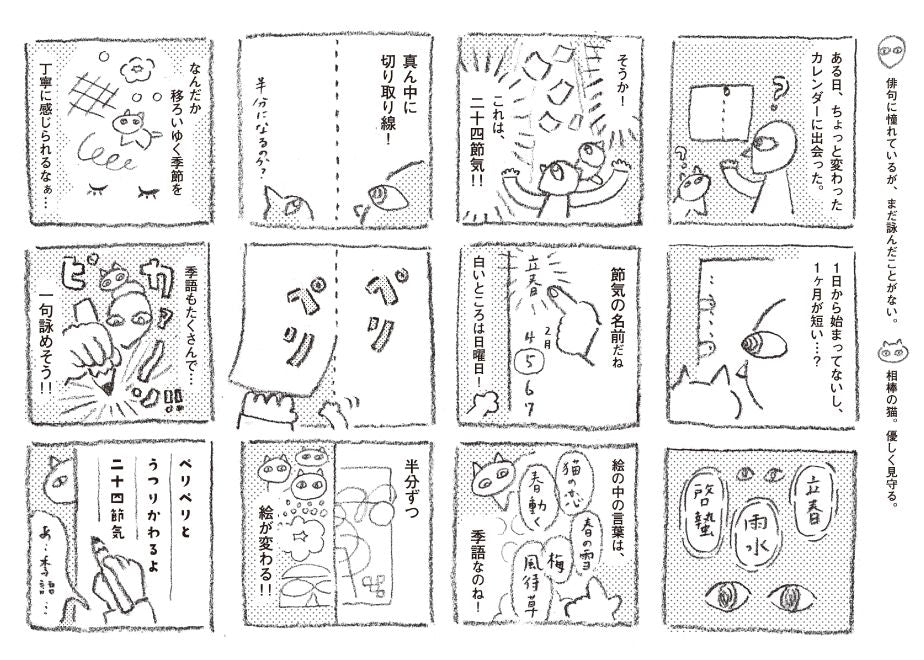 俳句に憧れているが、まだ詠んだことがない。
相棒の猫。優しく見守る。
ある日、ちょっと変わった
カレンダーに出会った。
?
?
1日から始まってないし、
1ヶ月が短い…?
立春
雨水
啓蟄
そうか!
これは、
二十四節気!!
節気の名前だね
立春
2月
4
5
6
7
白いところは日曜日!
絵の中の言葉は、
猫の恋
春動く
春の雪
梅
風待草
季語なのね!
真ん中に
切り取り線!
半分になるのか?
ペリ
ペリ
半分ずつ
絵が変わる!!
なんだか
移ろいゆく季節を
丁寧に感じられるなぁ…
季語もたくさんで…
ピカァーッ!!
一句詠めそう!!
ペリペリと
うつりかわるよ
二十四節気
あ…季語…